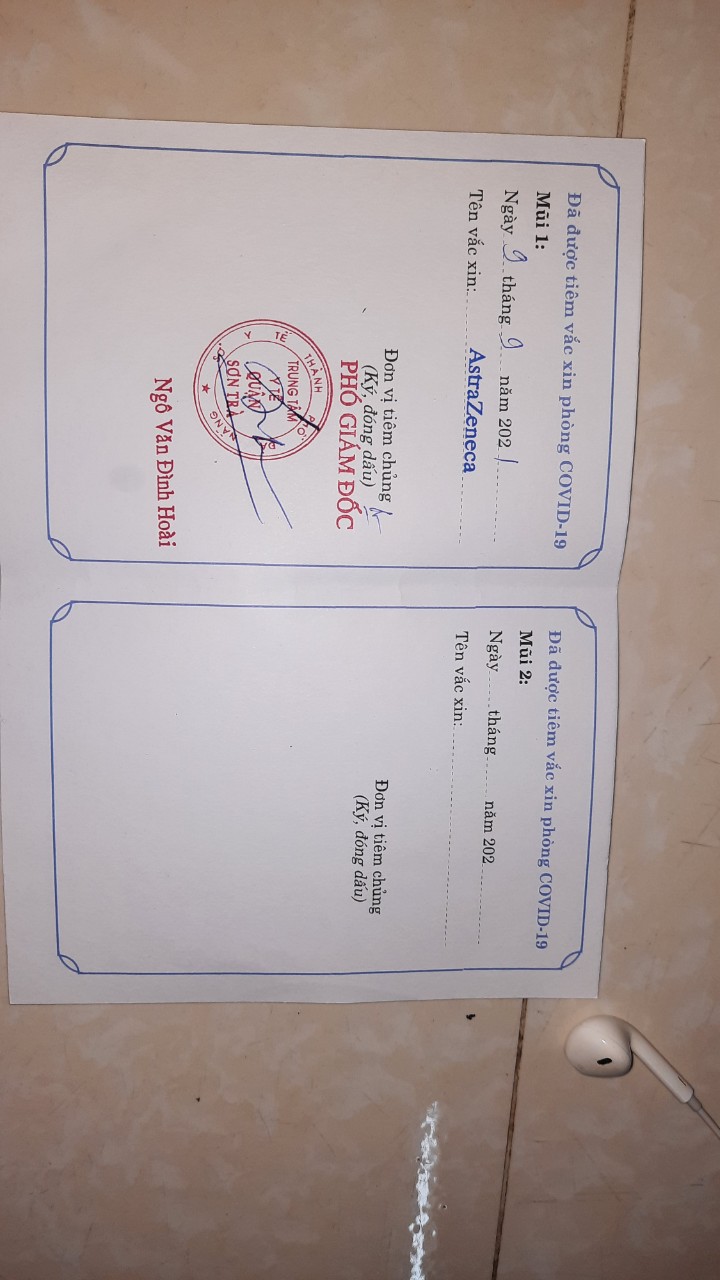 Đã được tiêm vắc xin phòng COVID-19
Mũi 1:
Ngày 9 tháng 9 năm 2021
Tên vắc xin: AstraZeneca
Đơn vị tiêm chủng
(Ký, đóng dấu)
PHÓ GIÁM ĐỐC
Y TẾ THÀNH PHỐ ĐÀ NẴNG
TRUNG TÂM
Y TẾ
QUẬN
SƠN TRÀ
Ngô Văn Đình Hoài
Đã được tiêm vắc xin phòng COVID-19
Mũi 2:
Ngày tháng năm 202
Tên vắc xin:
Đơn vị tiêm chủng
(Ký, đóng dấu)